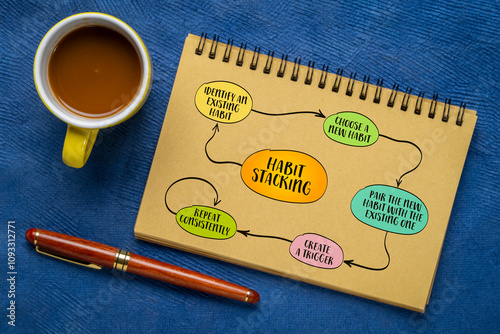 HABIT
STACKING
IDENTIFY AN
EXISTING
HABIT
CHOOSE A
NEW HABIT
PAIR THE NEW
HABIT WITH THE
EXISTING ONE
CREATE
A TRIGGER
REPEAT
CONSISTENTLY
Adobe Stock | #1093312771